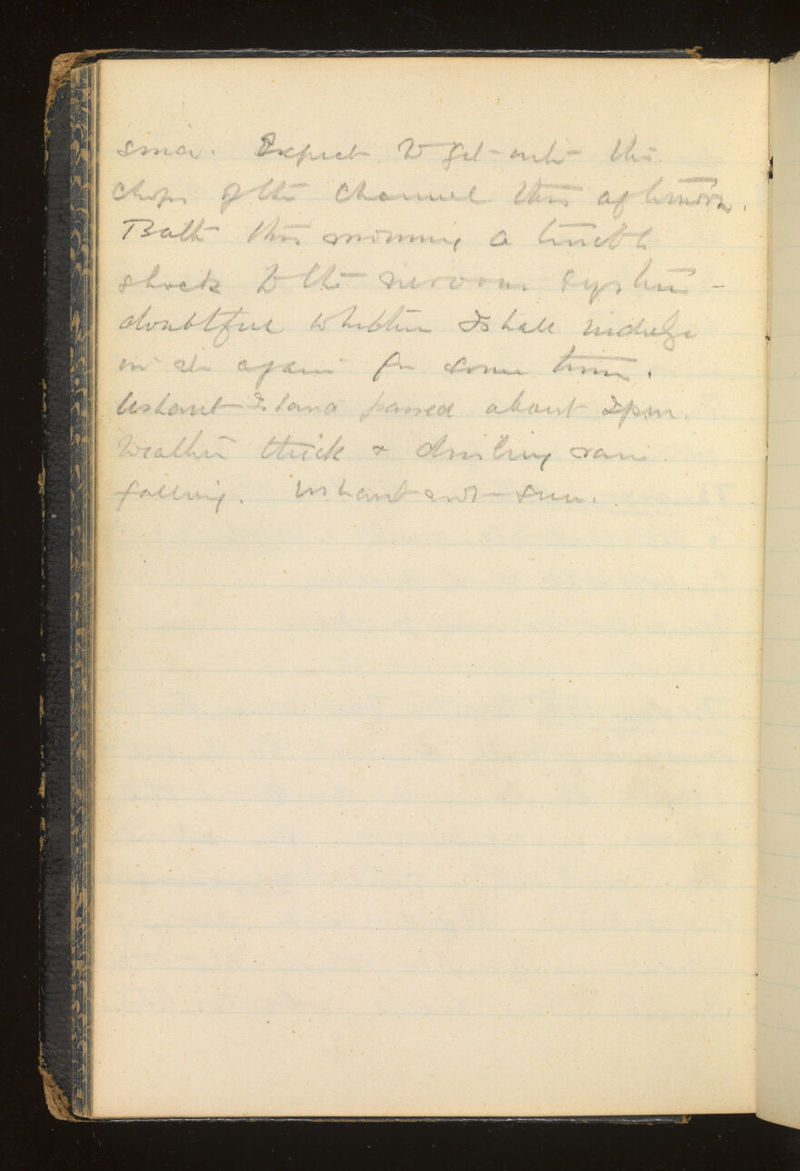 since. Expect to get into the
chops of the channel this afternoon.
Bath this morning a terrible
shock to the nervous system -
doubtful whether I shall indulge
in it again for some time.
Ushant Island passed about 2pm.
Weather thick & drizzling rain
falling. Ushant not seen.